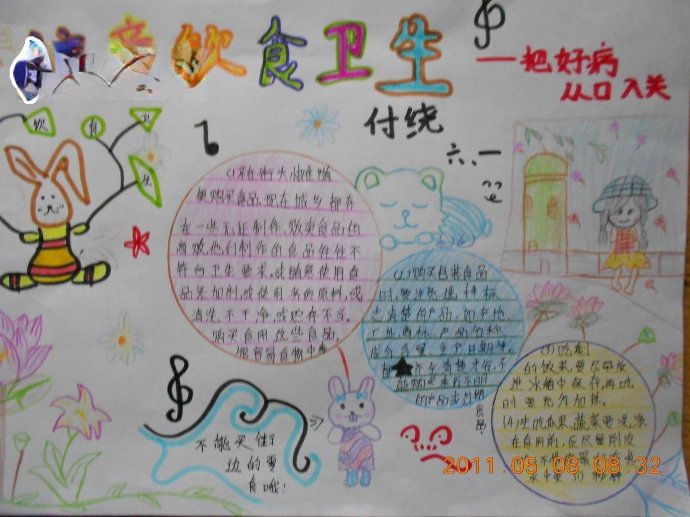 饮食卫生
——把好病
从口入关
付绕
六、一
饮
食
卫
生
(1)不在街头
便购买食品,现在城乡都存
在一些无证制作、贩卖食品的
商贩,他们制作的食品往往不
符合卫生要求,或随意使用食
品添加剂,或使用劣质原料,或
清洗不干净,或贮存不当。
购买食用这些食品,
很容易食物中毒。
(2)购买包装食品
时,要注意选择标
志清楚的产品,如产地、
厂址、商标、产品名称、
成分、含量、生产日期等。
的产品或过期
食品。
(3)吃剩
的饭菜,要尽早放
进冰箱中保存,再吃
时要充分加热。
(4)生吃瓜果、蔬菜要洗净。
在食用前,应尽量削皮
不能买街
边的零
食哦!
2011 05 08 08:32